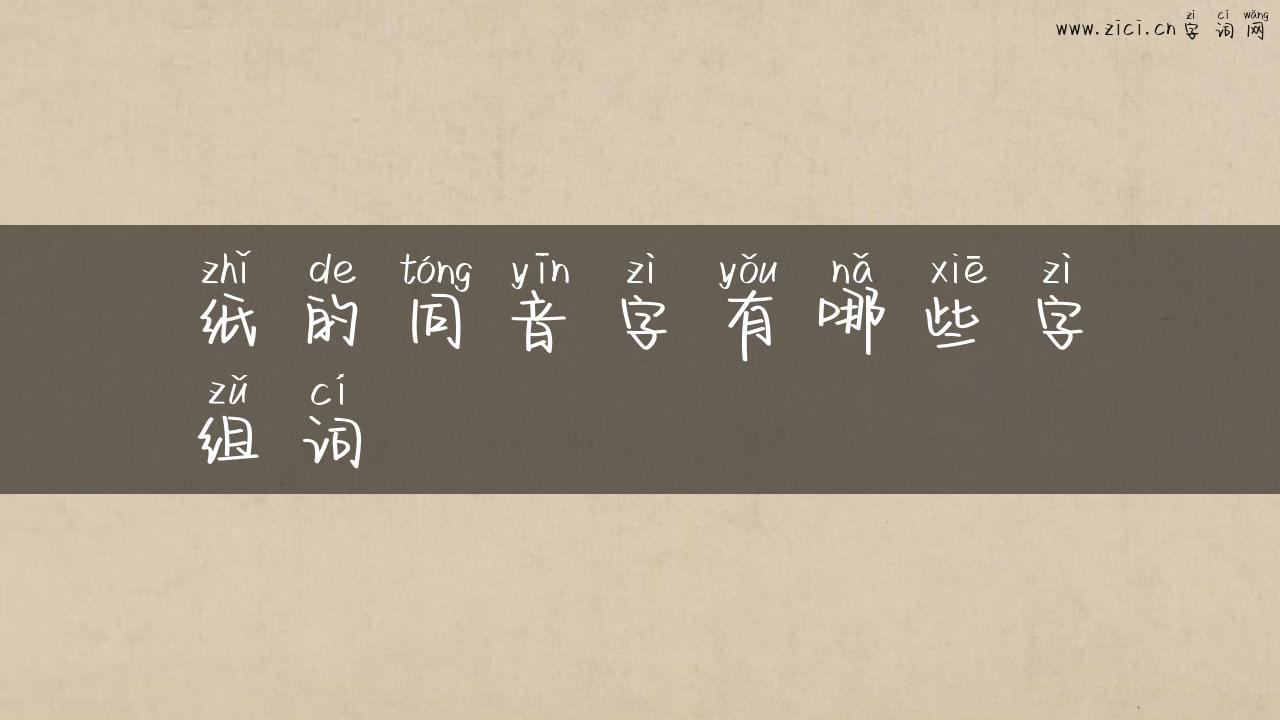 zì cí wǎng
www.zici.cn 字词网
zhǐ de tóng yīn zì yǒu nǎ xiē zì
纸的同音字有哪些字
zǔ cí
组词